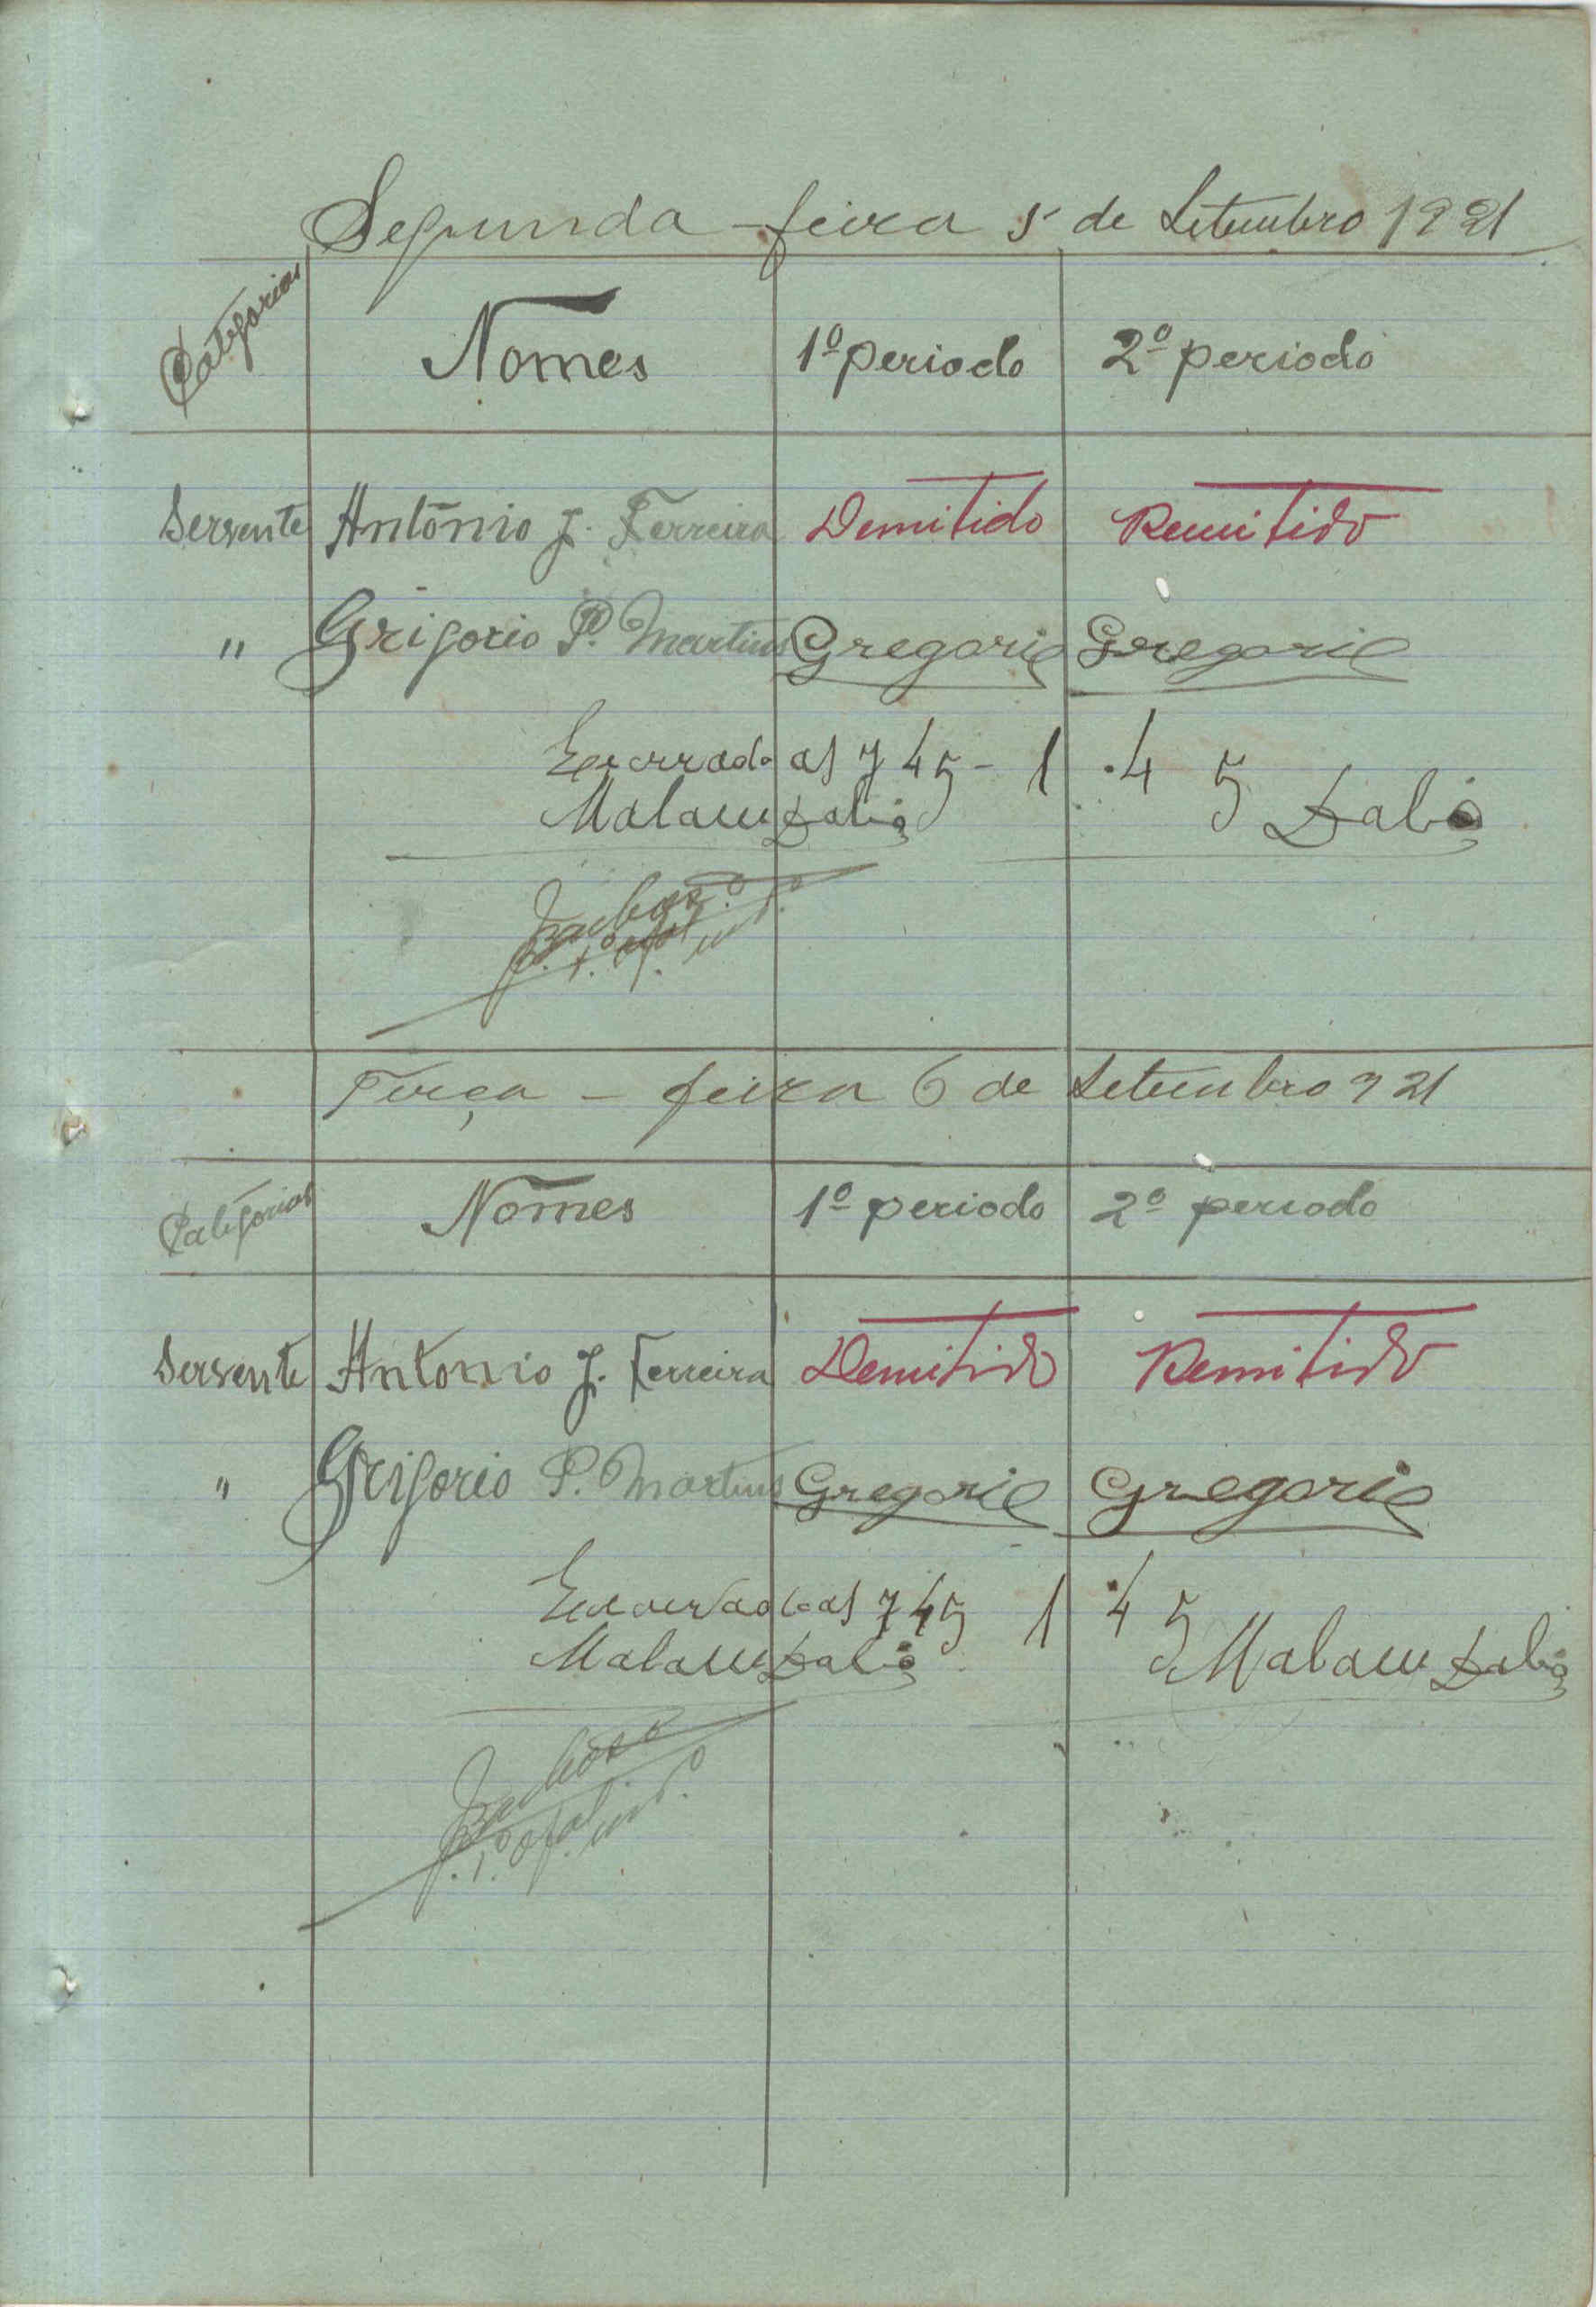 Segunda - feira 5 de Setembro 1921
Categorias Nomes 1º periodo 2º periodo
Servente António J. Ferreira Demitido Demitido
" Grigorio P. Martins Gregorio Gregorio
Encerrado as 7 45 - 1 4 5
Malam Dabó Dabó
Terça - feira 6 de Setembro 921
Categorias Nomes 1º periodo 2º periodo
Servente Antonio J. Ferreira Demitido Demitido
" Grigorio P. Martins Gregorio Gregorio
Encerrado as 7 45 1 4 5
Malam Dabó Malam Dabó